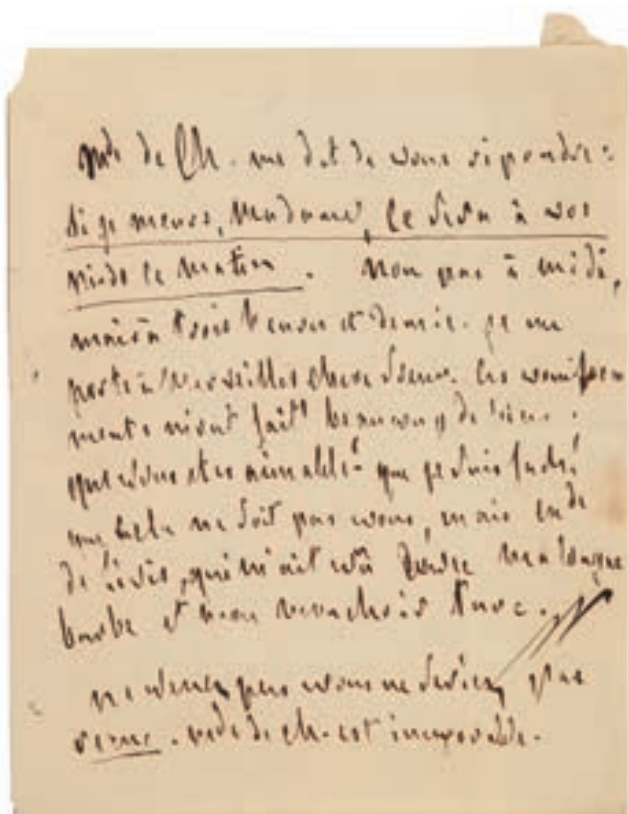 Mde de Ch. me dit de vous répondre :
Si je meurs, Madame, ce sera à vos
pieds ce matin. Non pas à midi,
mais à trois heures et demie. je me
porte à merveilles chere Les vomisse
ments m'ont fait beaucoup de bien.
que vous etes aimable! que je suis faché
que cela ne soit pas vous, mais Mde
de qui m'ait vû ma longue
barbe et mon turc.
ne venez pas vous ne seriez pas
recue. Mde de Ch. est inexorable.